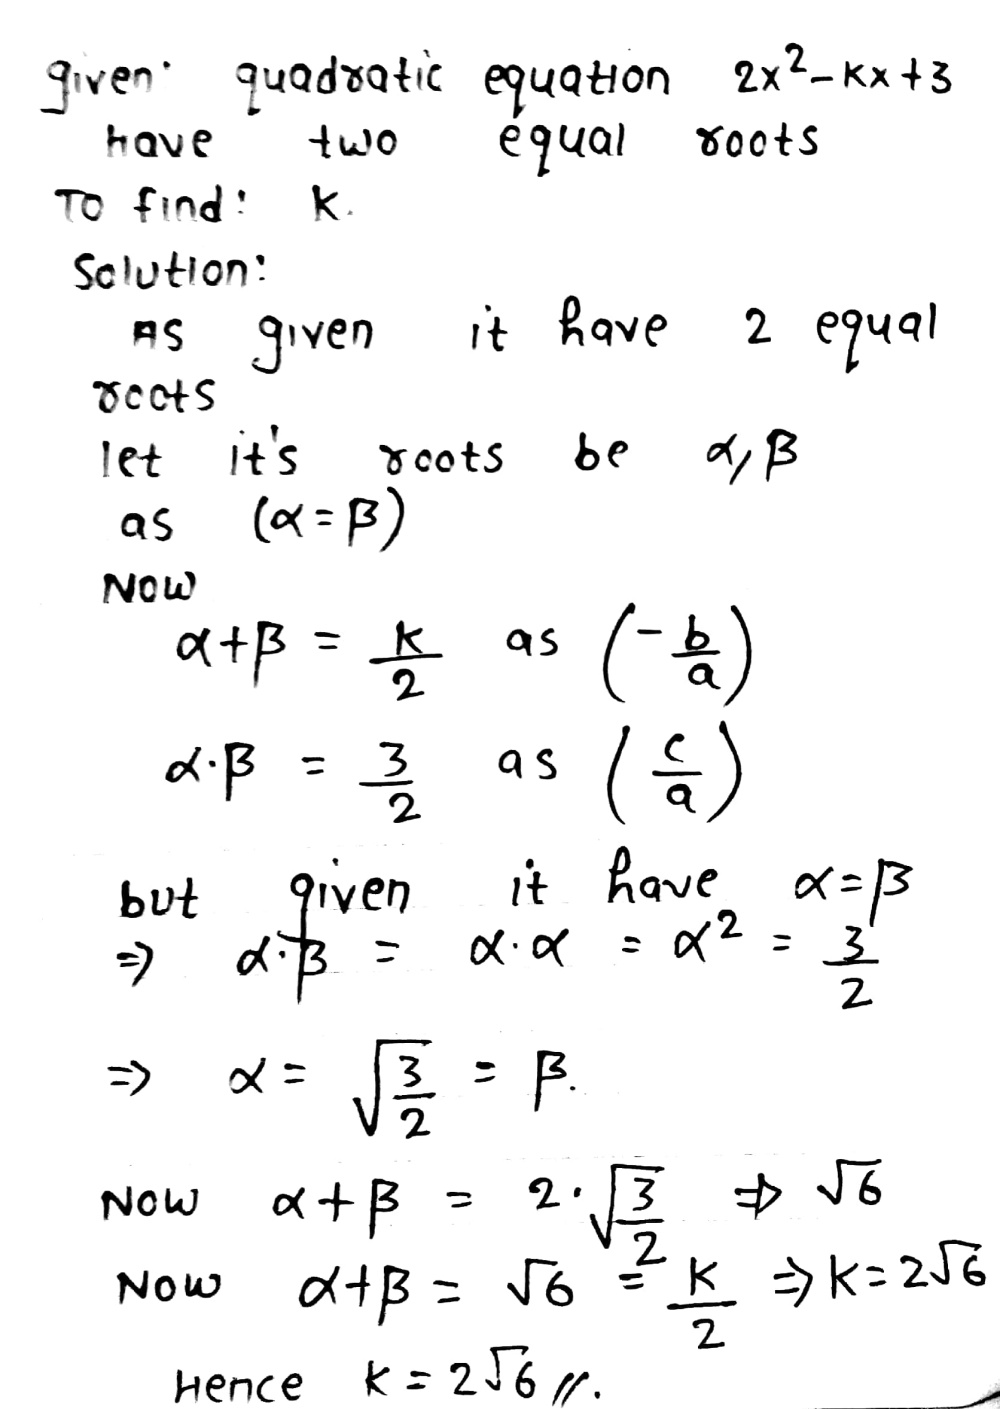 given: quadratic equation 2x²-kx+3
have two equal roots
To find: k.
Solution:
As given it have 2 equal
roots
let it's roots be α, β
as (α=β)
Now
α+β = k/2 as (-b/a)
α·β = 3/2 as (c/a)
but given it have α=β
⇒ α·β = α·α = α² = 3/2
⇒ α = √(3/2) = β.
Now α+β = 2·√(3/2) ⇒ √6
Now α+β = √6 = k/2 ⇒ k=2√6
Hence k = 2√6 //.